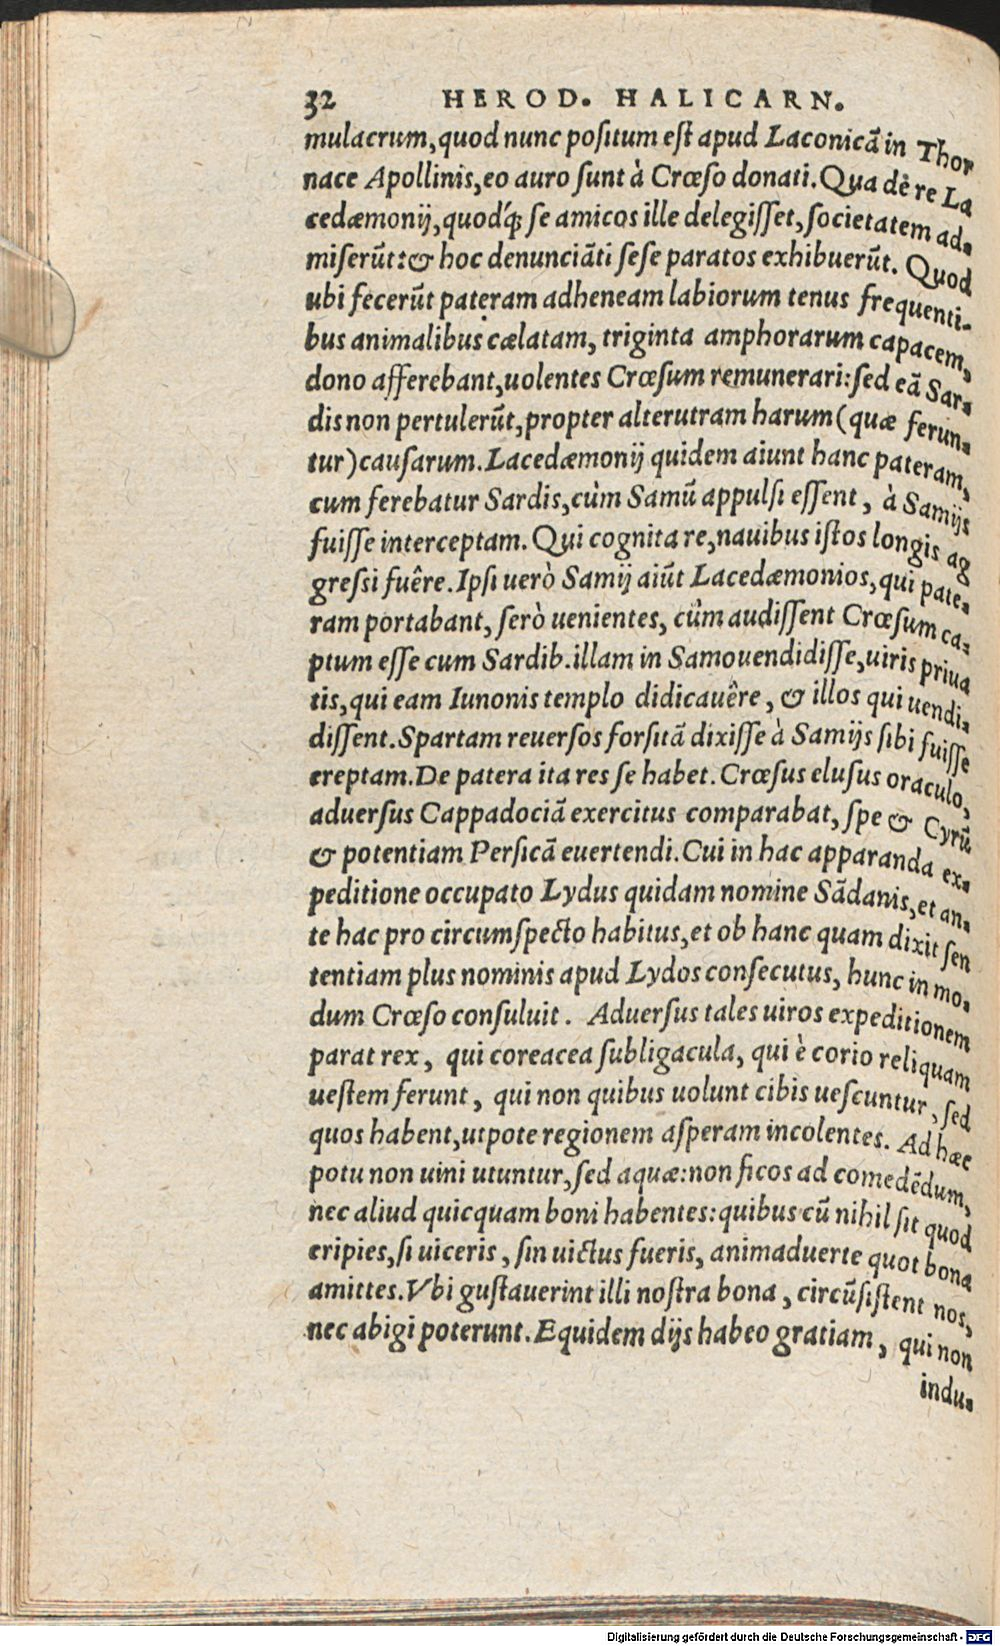 32 HEROD. HALICARN.
mulacrum, quod nunc poſitum eſt apud Laconicã in Thor
nace Apollinis, eo auro ſunt à Crœſo donati. Qua dè re La
cedæmonij, quodq́; ſe amicos ille delegiſſet, ſocietatem ad-
miſerũt: & hoc denunciãti ſeſe paratos exhibuerũt. Quod
ubi fecerũt pateram adheneam labiorum tenus frequenti-
bus animalibus cælatam, triginta amphorarum capacem,
dono afferebant, uolentes Crœſum remunerari: ſed eã Sar-
dis non pertulerũt, propter alterutram harum (quæ ferun-
tur) cauſarum. Lacedæmonij quidem aiunt hanc pateram,
cum ferebatur Sardis, cùm Samũ appulſi eſſent, à Samijs
fuiſſe interceptam. Qui cognita re, nauibus iſtos longis ag
greſsi fuêre. Ipſi uerò Samij aiũt Lacedæmonios, qui pate-
ram portabant, ſerò uenientes, cùm audiſſent Crœſum ca-
ptum eſſe cum Sardib. illam in Samo uendidiſſe, uiris priua
tis, qui eam Iunonis templo didicauêre, & illos qui uendi-
diſſent. Spartam reuerſos forſitã dixiſſe à Samijs ſibi fuiſſe
ereptam. De patera ita res ſe habet. Crœſus eluſus oraculo,
aduerſus Cappadociã exercitus comparabat, ſpe & Cyrũ
& potentiam Perſicã euertendi. Cui in hac apparanda ex-
peditione occupato Lydus quidam nomine Sãdanis, et an-
te hac pro circumſpecto habitus, et ob hanc quam dixit ſen
tentiam plus nominis apud Lydos conſecutus, hunc in mo-
dum Crœſo conſuluit. Aduerſus tales uiros expeditionem
parat rex, qui coreacea ſubligacula, qui è corio reliquam
ueſtem ferunt, qui non quibus uolunt cibis ueſcuntur, ſed
quos habent, utpote regionem aſperam incolentes. Ad hæc
potu non uini utuntur, ſed aquæ: non ficos ad comedẽdum,
nec aliud quicquam boni habentes: quibus cũ nihil ſit quod
eripies, ſi uiceris, ſin uictus fueris, animaduerte quot bona
amittes. Vbi guſtauerint illi noſtra bona, circũſiſtent nos,
nec abigi poterunt. Equidem dijs habeo gratiam, qui non
indu-
Digitalisierung gefördert durch die Deutsche Forschungsgemeinschaft - DFG